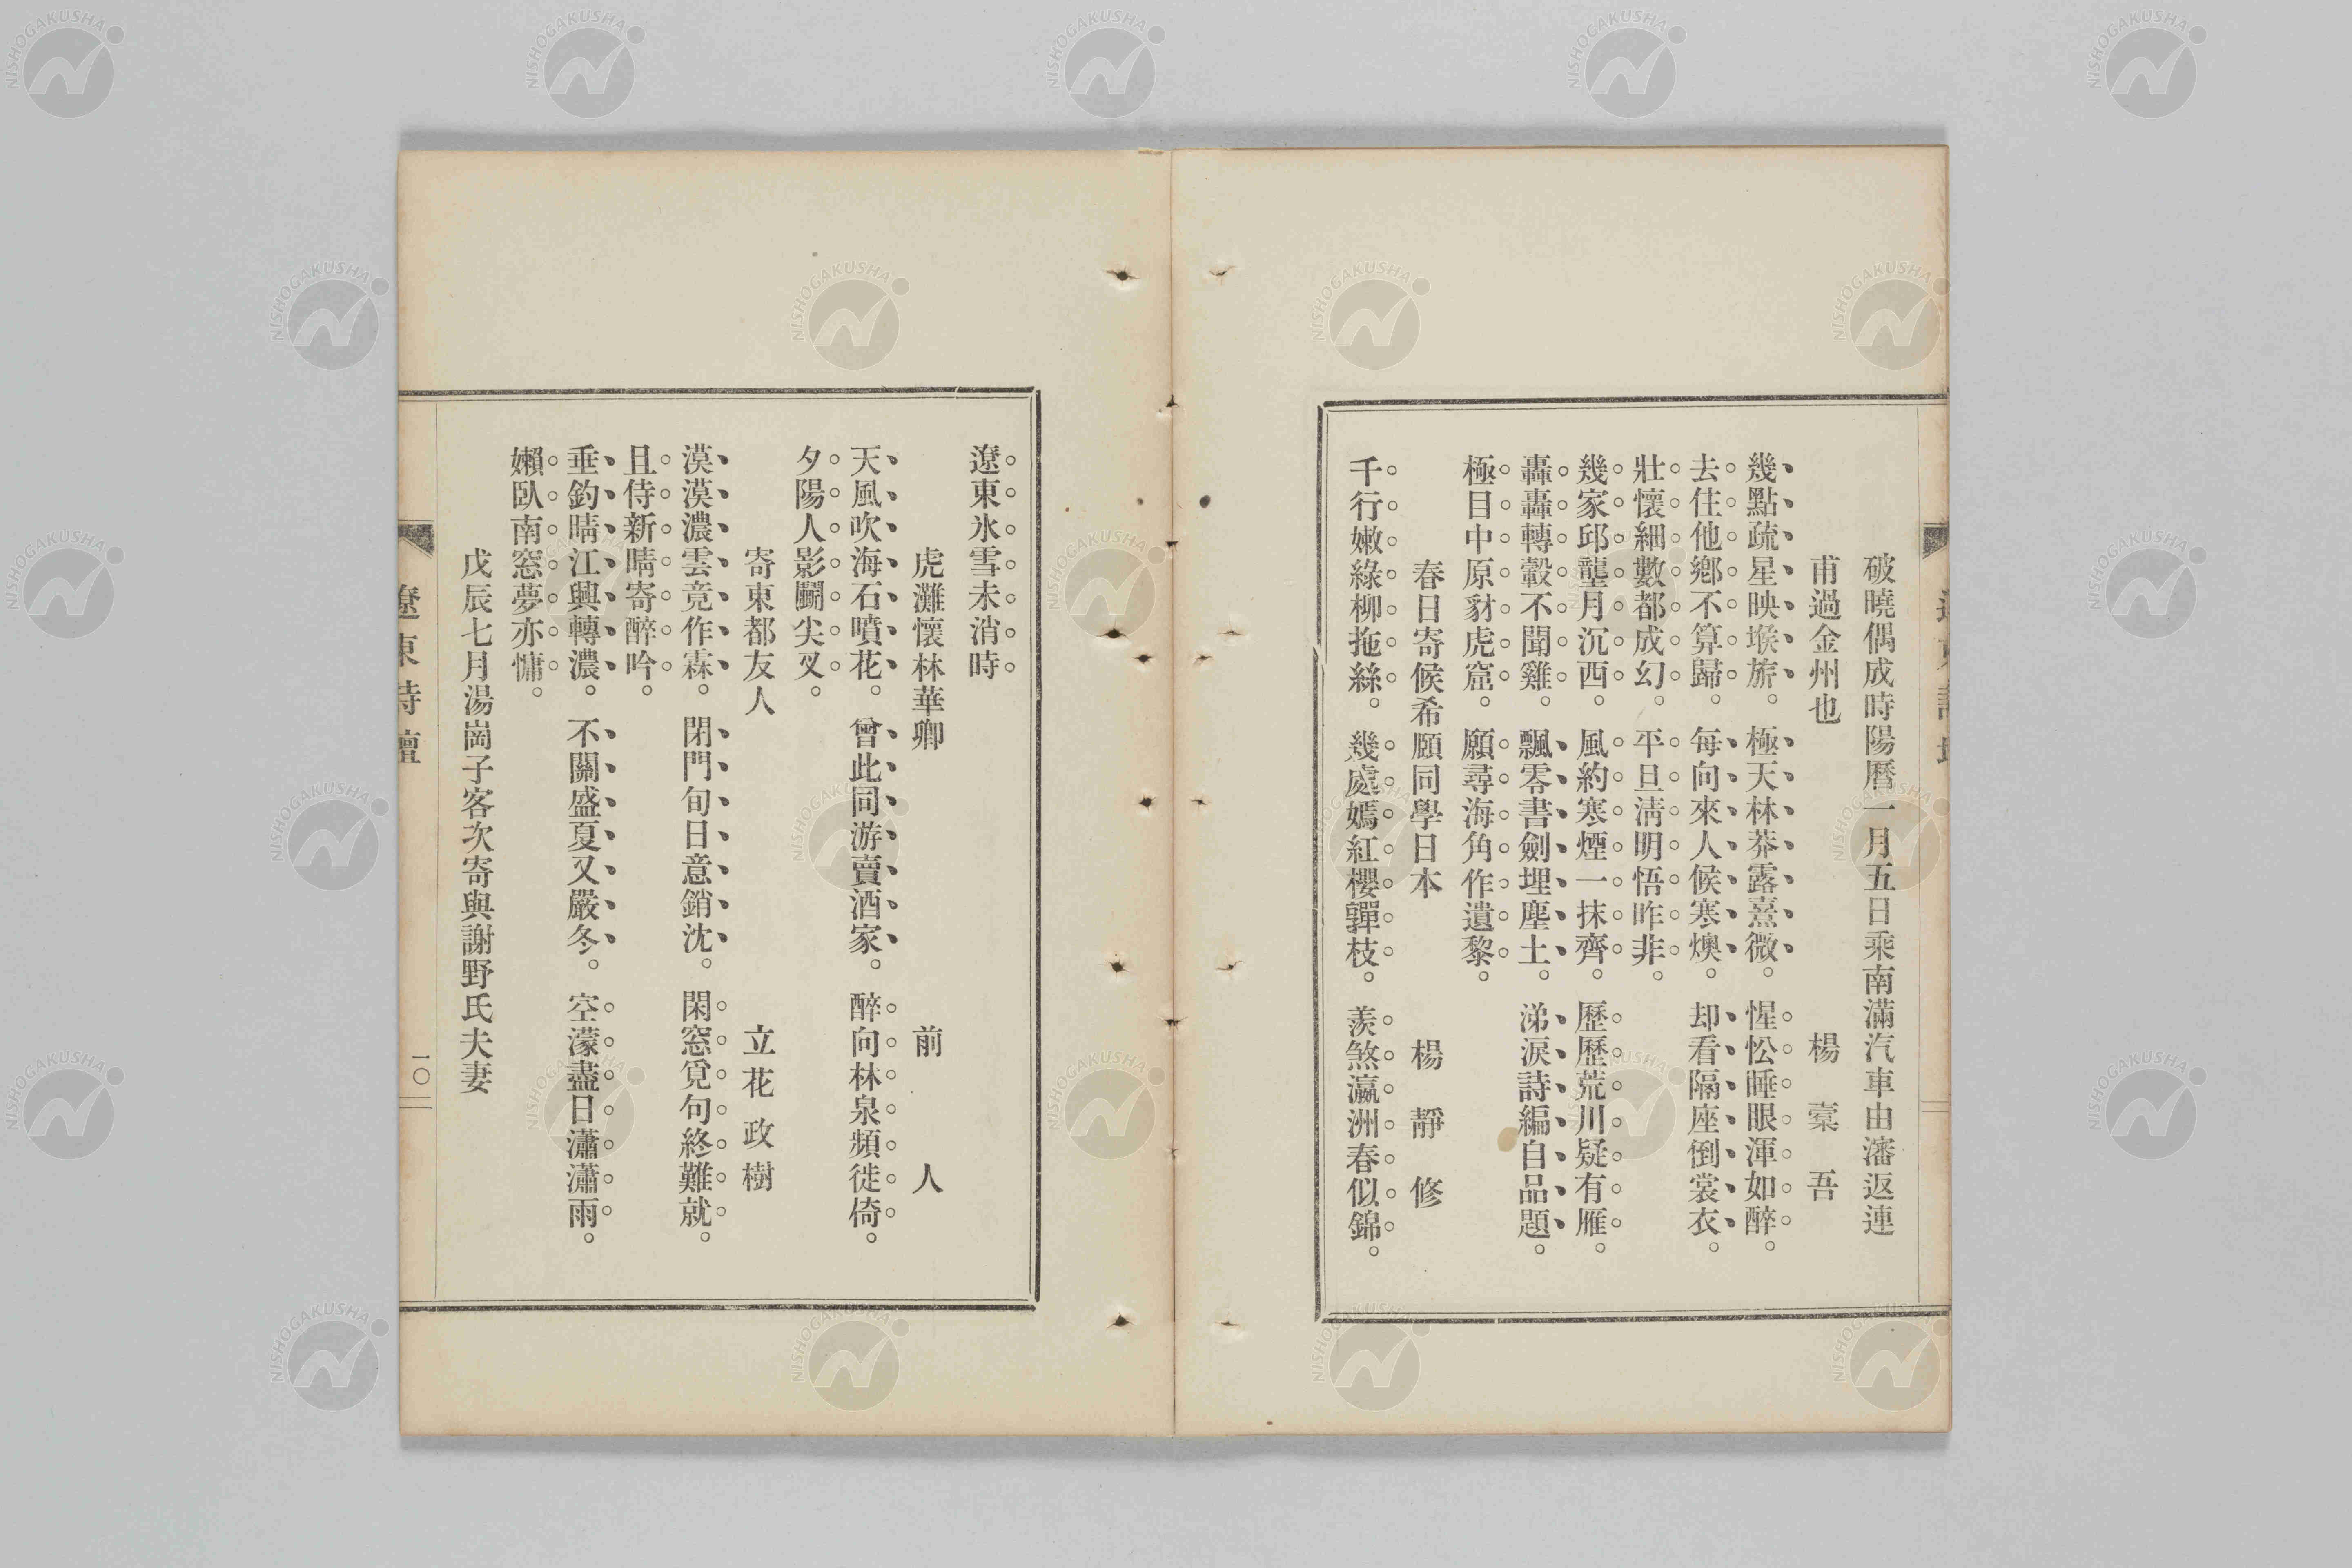 破曉偶成時陽曆一月五日乘南滿汽車由瀋返連
甫過金州也　楊稾吾
幾點疏星映堠旂。極天林莽露熹微。惺忪睡眼渾如醉。
去住他鄕不算歸。每向來人候寒燠。却看隔座倒裳衣。
壯懷細數都成幻。平旦淸明悟昨非。
幾家邱壟月沉西。風約寒煙一抹齊。歷歷荒川疑有雁。
轟轟轉轂不聞雞。飄零書劍埋塵土。涕淚詩編自品題。
極目中原豺虎窟。願尋海角作遺黎。
春日寄候希願同學日本　楊靜修
千行嫩綠柳拖絲。幾處嫣紅櫻嚲枝。羨煞瀛洲春似錦。
遼東氷雪未消時
虎灘懷林華卿　前人
天風吹海石噴花。曾此同游賣酒家。醉向林泉頻徙倚。
夕陽人影鬭尖叉。
寄東都友人　立花政樹
漠漠濃雲竟作霖。閉門旬日意銷沈。閑窓覓句終難就。
且侍新晴寄醉吟。
垂釣晴江興轉濃。不關盛夏又嚴冬。空濛盡日瀟瀟雨。
嬾臥南窓夢亦慵。
戊辰七月湯崗子客次寄與謝野氏夫妻
遼東詩壇
一〇
NISHOGAKUSHA